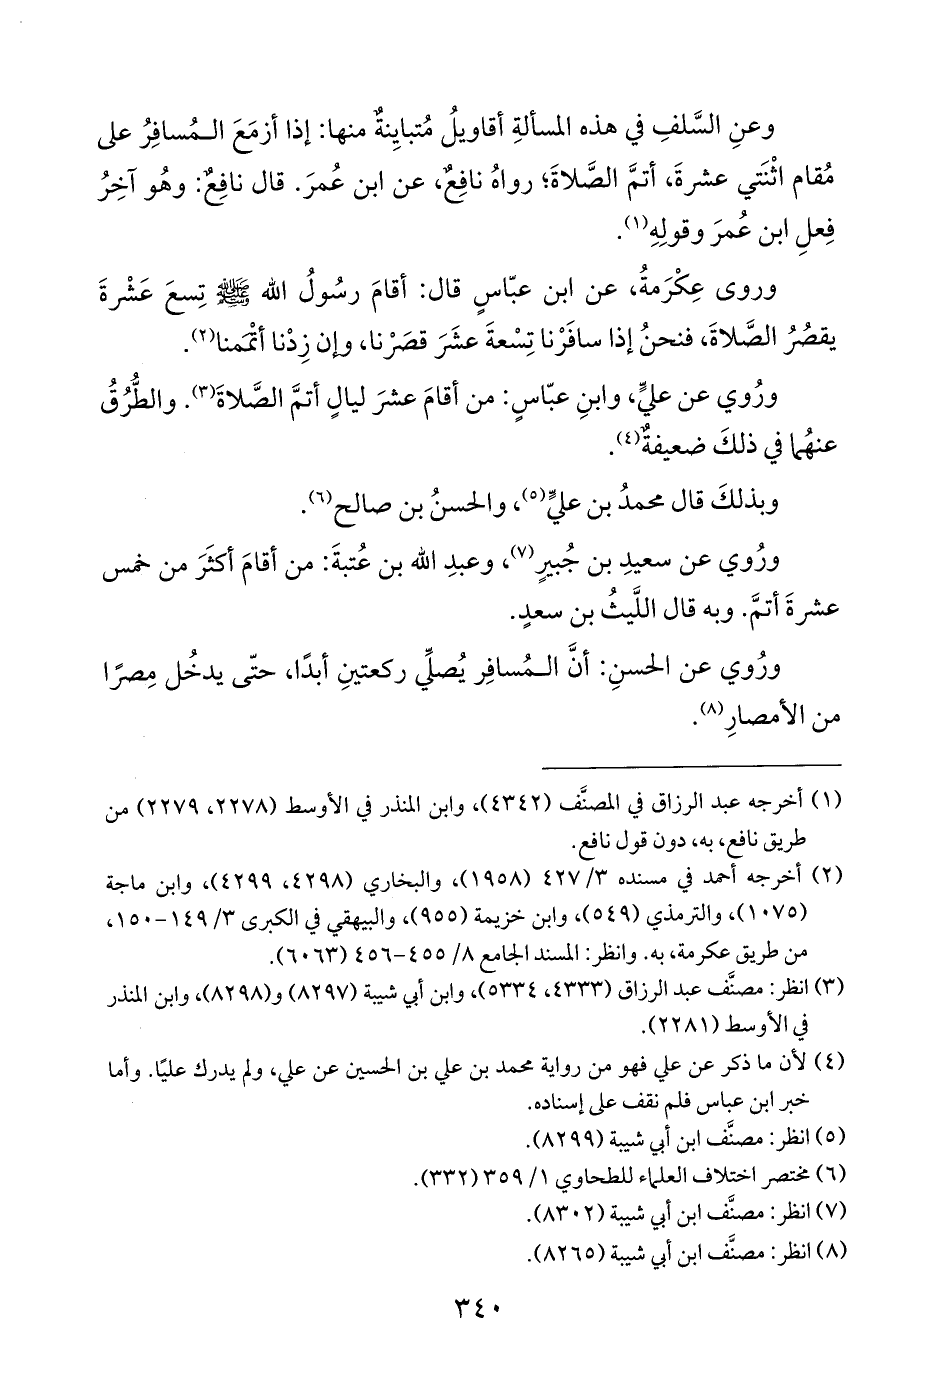 وعنِ السَّلفِ في هذه المسألةِ أقاويلُ مُتباينةٌ منها: إذا أزمَعَ الـمُسافِرُ على
مُقام اثْنَتي عشرةَ، أتمَّ الصَّلاةَ؛ رواهُ نافِعٌ، عن ابن عُمرَ. قال نافِعٌ: وهُو آخِرُ
فِعلِ ابن عُمرَ وقولِهِ(١).
وروى عِكْرمةُ، عن ابن عبّاسٍ قال: أقامَ رسُولُ الله ﷺ تِسعَ عَشْرةَ
يقصُرُ الصَّلاةَ، فنحنُ إذا سافَرْنا تِسْعةَ عشَرَ قصَرْنا، وإن زِدْنا أتْمَمنا(٢).
ورُوي عن عليٍّ، وابنِ عبّاسٍ: من أقامَ عشرَ ليالٍ أتمَّ الصَّلاةَ(٣). والطُّرُقُ
عنهُما في ذلكَ ضعيفةٌ(٤).
وبذلكَ قال محمدُ بن عليٍّ(٥)، والحسنُ بن صالح(٦).
ورُوي عن سعيدِ بن جُبيرٍ(٧)، وعبدِ الله بن عُتبةَ: من أقامَ أكثَرَ من خمس
عشرةَ أتمَّ. وبه قال اللَّيثُ بن سعدٍ.
ورُوي عن الحسنِ: أنَّ الـمُسافِر يُصلِّي ركعتينِ أبدًا، حتّى يدخُل مِصرًا
من الأمصارِ(٨).
(١) أخرجه عبد الرزاق في المصنَّف (٤٣٤٢)، وابن المنذر في الأوسط (٢٢٧٨، ٢٢٧٩) من
طريق نافع، به، دون قول نافع.
(٢) أخرجه أحمد في مسنده ٣/ ٤٢٧ (١٩٥٨)، والبخاري (٤٢٩٨، ٤٢٩٩)، وابن ماجة
(١٠٧٥)، والترمذي (٥٤٩)، وابن خزيمة (٩٥٥)، والبيهقي في الكبرى ٣/ ١٤٩-١٥٠،
من طريق عكرمة، به. وانظر: المسند الجامع ٨/ ٤٥٥-٤٥٦ (٦٠٦٣).
(٣) انظر: مصنَّف عبد الرزاق (٤٣٣٣، ٥٣٣٤)، وابن أبي شيبة (٨٢٩٧) و(٨٢٩٨)، وابن المنذر
في الأوسط (٢٢٨١).
(٤) لأن ما ذكر عن علي فهو من رواية محمد بن علي بن الحسين عن علي، ولم يدرك عليًا. وأما
خبر ابن عباس فلم نقف على إسناده.
(٥) انظر: مصنَّف ابن أبي شيبة (٨٢٩٩).
(٦) مختصر اختلاف العلماء للطحاوي ١/ ٣٥٩ (٣٣٢).
(٧) انظر: مصنَّف ابن أبي شيبة (٨٣٠٢).
(٨) انظر: مصنَّف ابن أبي شيبة (٨٢٦٥).
٣٤٠